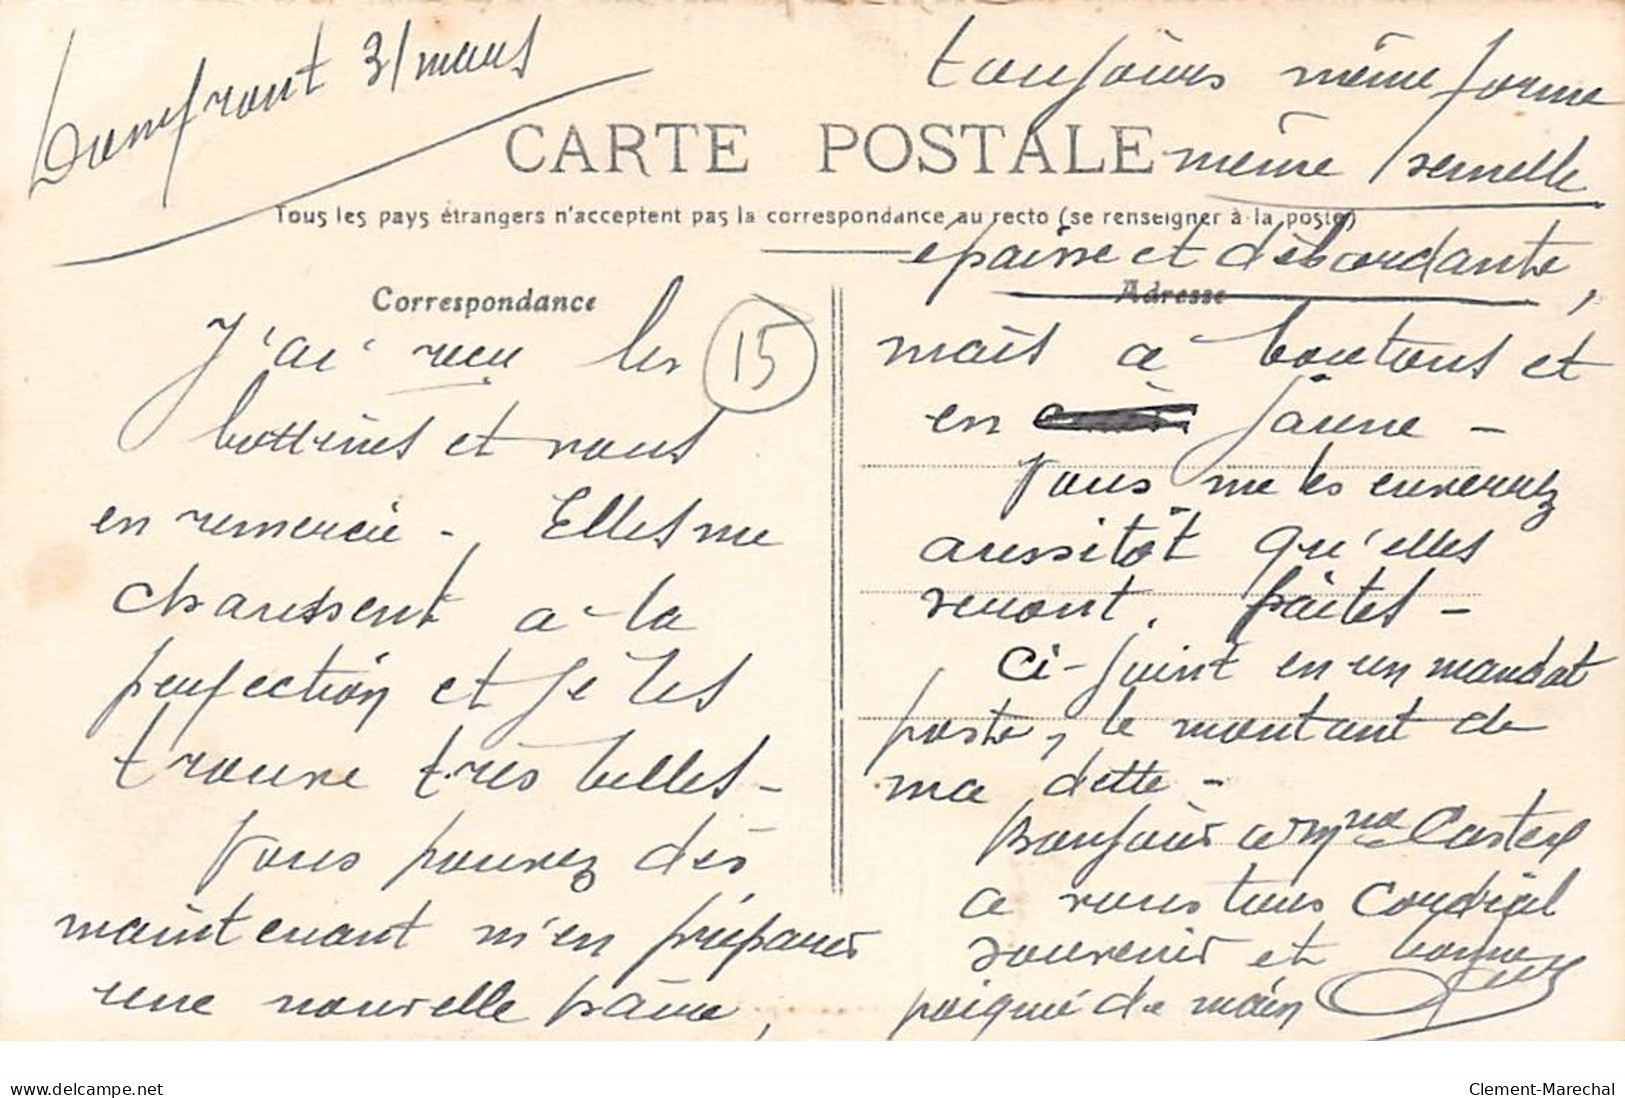 Domfront 31 mars
CARTE POSTALE
Tous les pays étrangers n'acceptent pas la correspondance au recto (se renseigner à la poste)
Correspondance
15
J'ai reçu les
bottines et vous
en remercie -. Elles me
chaussent à la
perfection et je les
trouve très belles -
Vous pouvez dès
maintenant m'en préparer
une nouvelle paire,
toujours même forme
même semelle
épaisse et débordante,
Adresse
mais à boutons et
en jaune -
Vous me les enverrez
aussitôt qu'elles
seront faites -
Ci-joint en un mandat
poste, le montant de
ma dette -
Bonjour à Mme Castex
à vous tous cordial
souvenir et bonne
poignée de main
www.delcampe.net
Clement-Marechal